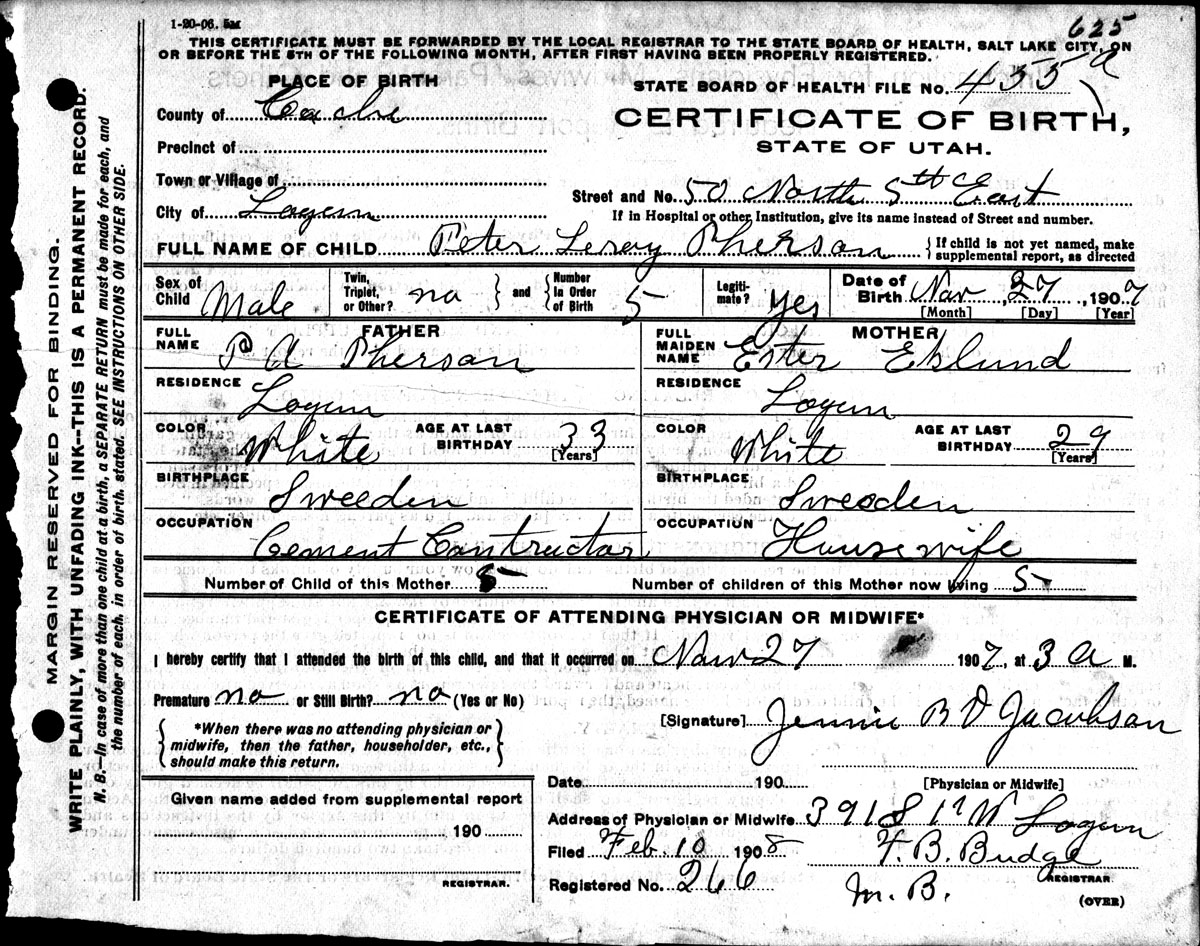 1-20-06. 5M
625
THIS CERTIFICATE MUST BE FORWARDED BY THE LOCAL REGISTRAR TO THE STATE BOARD OF HEALTH, SALT LAKE CITY, ON
OR BEFORE THE 5TH OF THE FOLLOWING MONTH, AFTER FIRST HAVING BEEN PROPERLY REGISTERED.
PLACE OF BIRTH
STATE BOARD OF HEALTH FILE NO. 455 a
County of Cache
CERTIFICATE OF BIRTH,
Precinct of
STATE OF UTAH.
Town or Village of
Street and No. 50 North 5th East
City of Logan
If in Hospital or other Institution, give its name instead of Street and number.
FULL NAME OF CHILD Peter Leroy Pherson {If child is not yet named, make
supplemental report, as directed
Sex of Child Male
Twin, Triplet, or Other? no } and { Number In Order of Birth 5
Legitimate? yes
Date of Birth Nov 27, 1907
[Month] [Day] [Year]
FATHER
FULL NAME P A Pherson
RESIDENCE Logan
COLOR White AGE AT LAST BIRTHDAY 33
[Years]
BIRTHPLACE Sweeden
OCCUPATION Cement Contractor
MOTHER
FULL MAIDEN NAME Ester Eklund
RESIDENCE Logan
COLOR White AGE AT LAST BIRTHDAY 29
[Years]
BIRTHPLACE Sweeden
OCCUPATION Housewife
Number of Child of this Mother 5 Number of children of this Mother now living 5
CERTIFICATE OF ATTENDING PHYSICIAN OR MIDWIFE*
I hereby certify that I attended the birth of this child, and that it occurred on Nov 27 1907, at 3 A M.
Premature no or Still Birth? no (Yes or No)
[Signature] Jennie B D Jacobson
{ *When there was no attending physician or
midwife, then the father, householder, etc.,
should make this return. }
Date 190 [Physician or Midwife]
Given name added from supplemental report
190
REGISTRAR.
Address of Physician or Midwife 391 S 1st W Logan
Filed Feb. 10 1908 F. B. Budge
Registered No. 266 M. B. REGISTRAR.
(OVER)
MARGIN RESERVED FOR BINDING.
WRITE PLAINLY, WITH UNFADING INK--THIS IS A PERMANENT RECORD.
N. B.--In case of more than one child at a birth, a SEPARATE RETURN must be made for each, and
the number of each, in order of birth, stated. SEE INSTRUCTIONS ON OTHER SIDE.